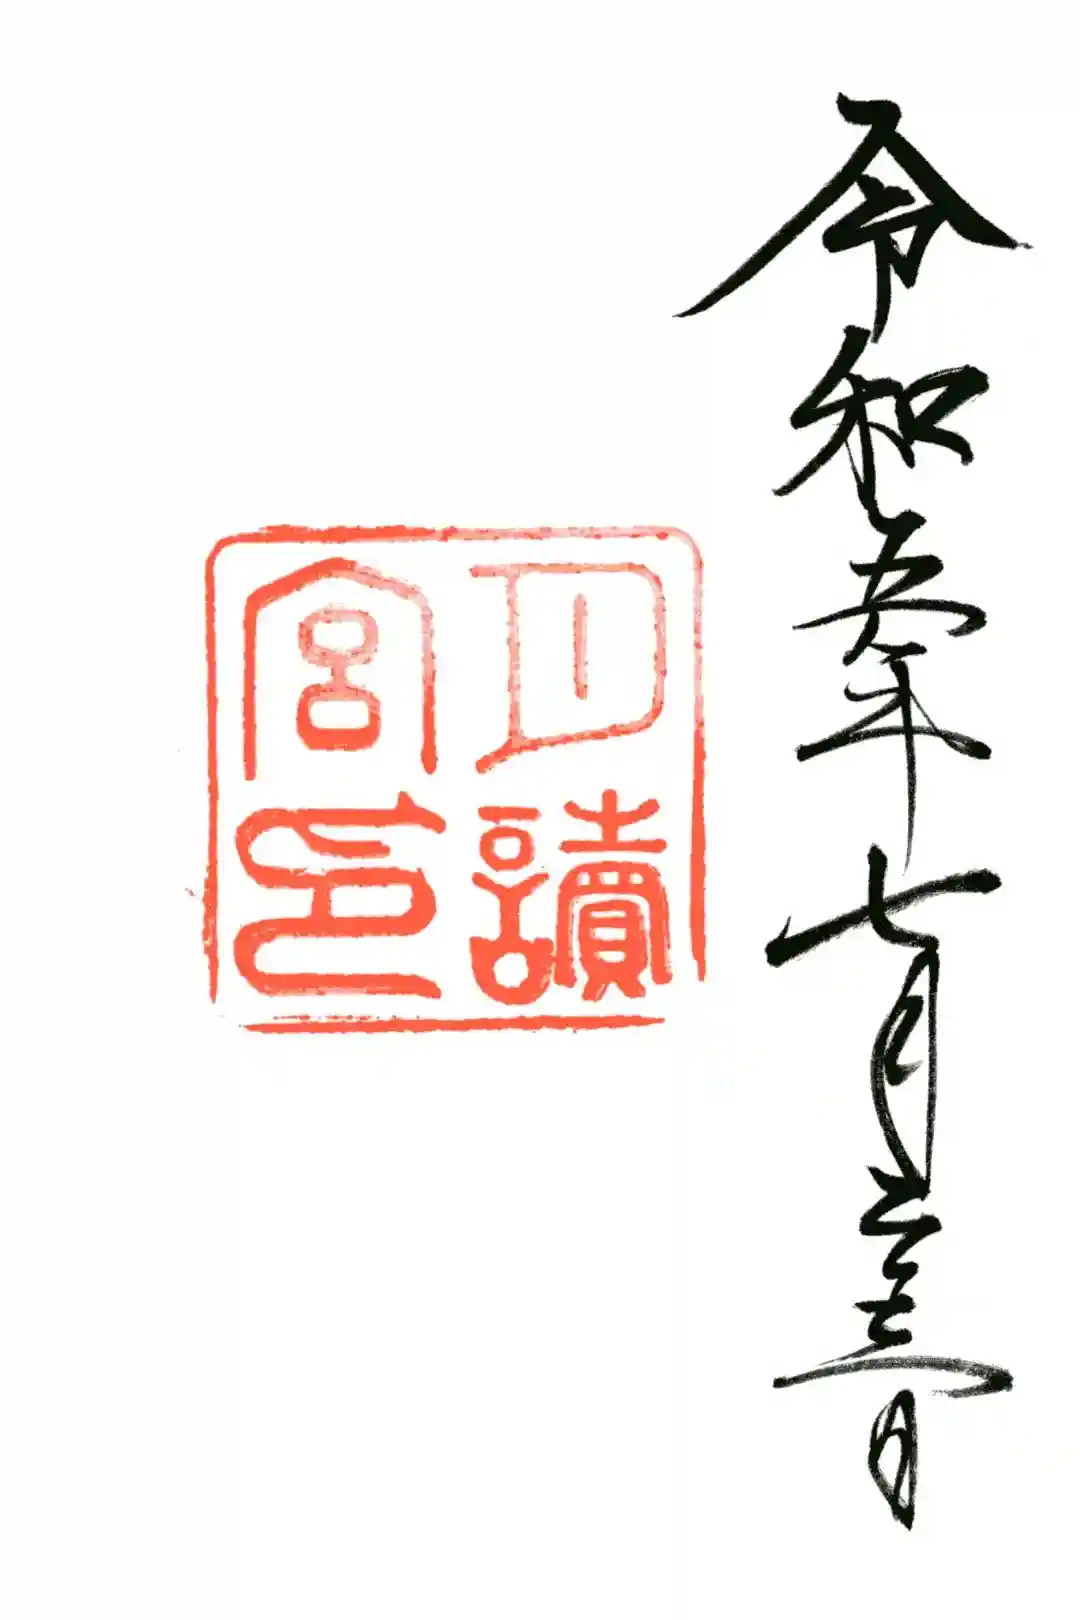 令和五年七月二三日
月讀
宮印